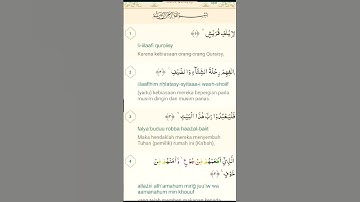 بِسْمِ اللَّهِ الرَّحْمَٰنِ الرَّحِيمِ
1
لِإِيلَافِ قُرَيْشٍ ﴿١﴾
li-iilaafi quraisy
Karena kebiasaan orang-orang Quraisy,
2
إِيلَافِهِمْ رِحْلَةَ الشِّتَاءِ وَالصَّيْفِ ﴿٢﴾
iilaafihim rihlatasy-syitaaa-i wash-shoif
(yaitu) kebiasaan mereka bepergian pada
musim dingin dan musim panas.
3
فَلْيَعْبُدُوا رَبَّ هَٰذَا الْبَيْتِ ﴿٣﴾
falya'buduu robba haazal-baiit
Maka hendaklah mereka menyembah
Tuhan (pemilik) rumah ini (Ka'bah),
4
الَّذِي أَطْعَمَهُمْ مِنْ جُوعٍ وَآمَنَهُمْ مِنْ
خَوْفٍ ﴿٤﴾
allaziii ath'amahum ming juu'iw wa
aamanahum min khouuf
yang telah memberi makanan kepada